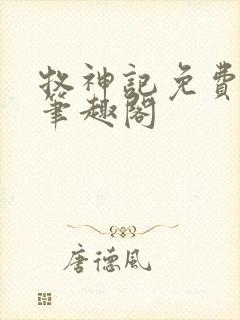 牧神記免費
筆趣閣
唐德風